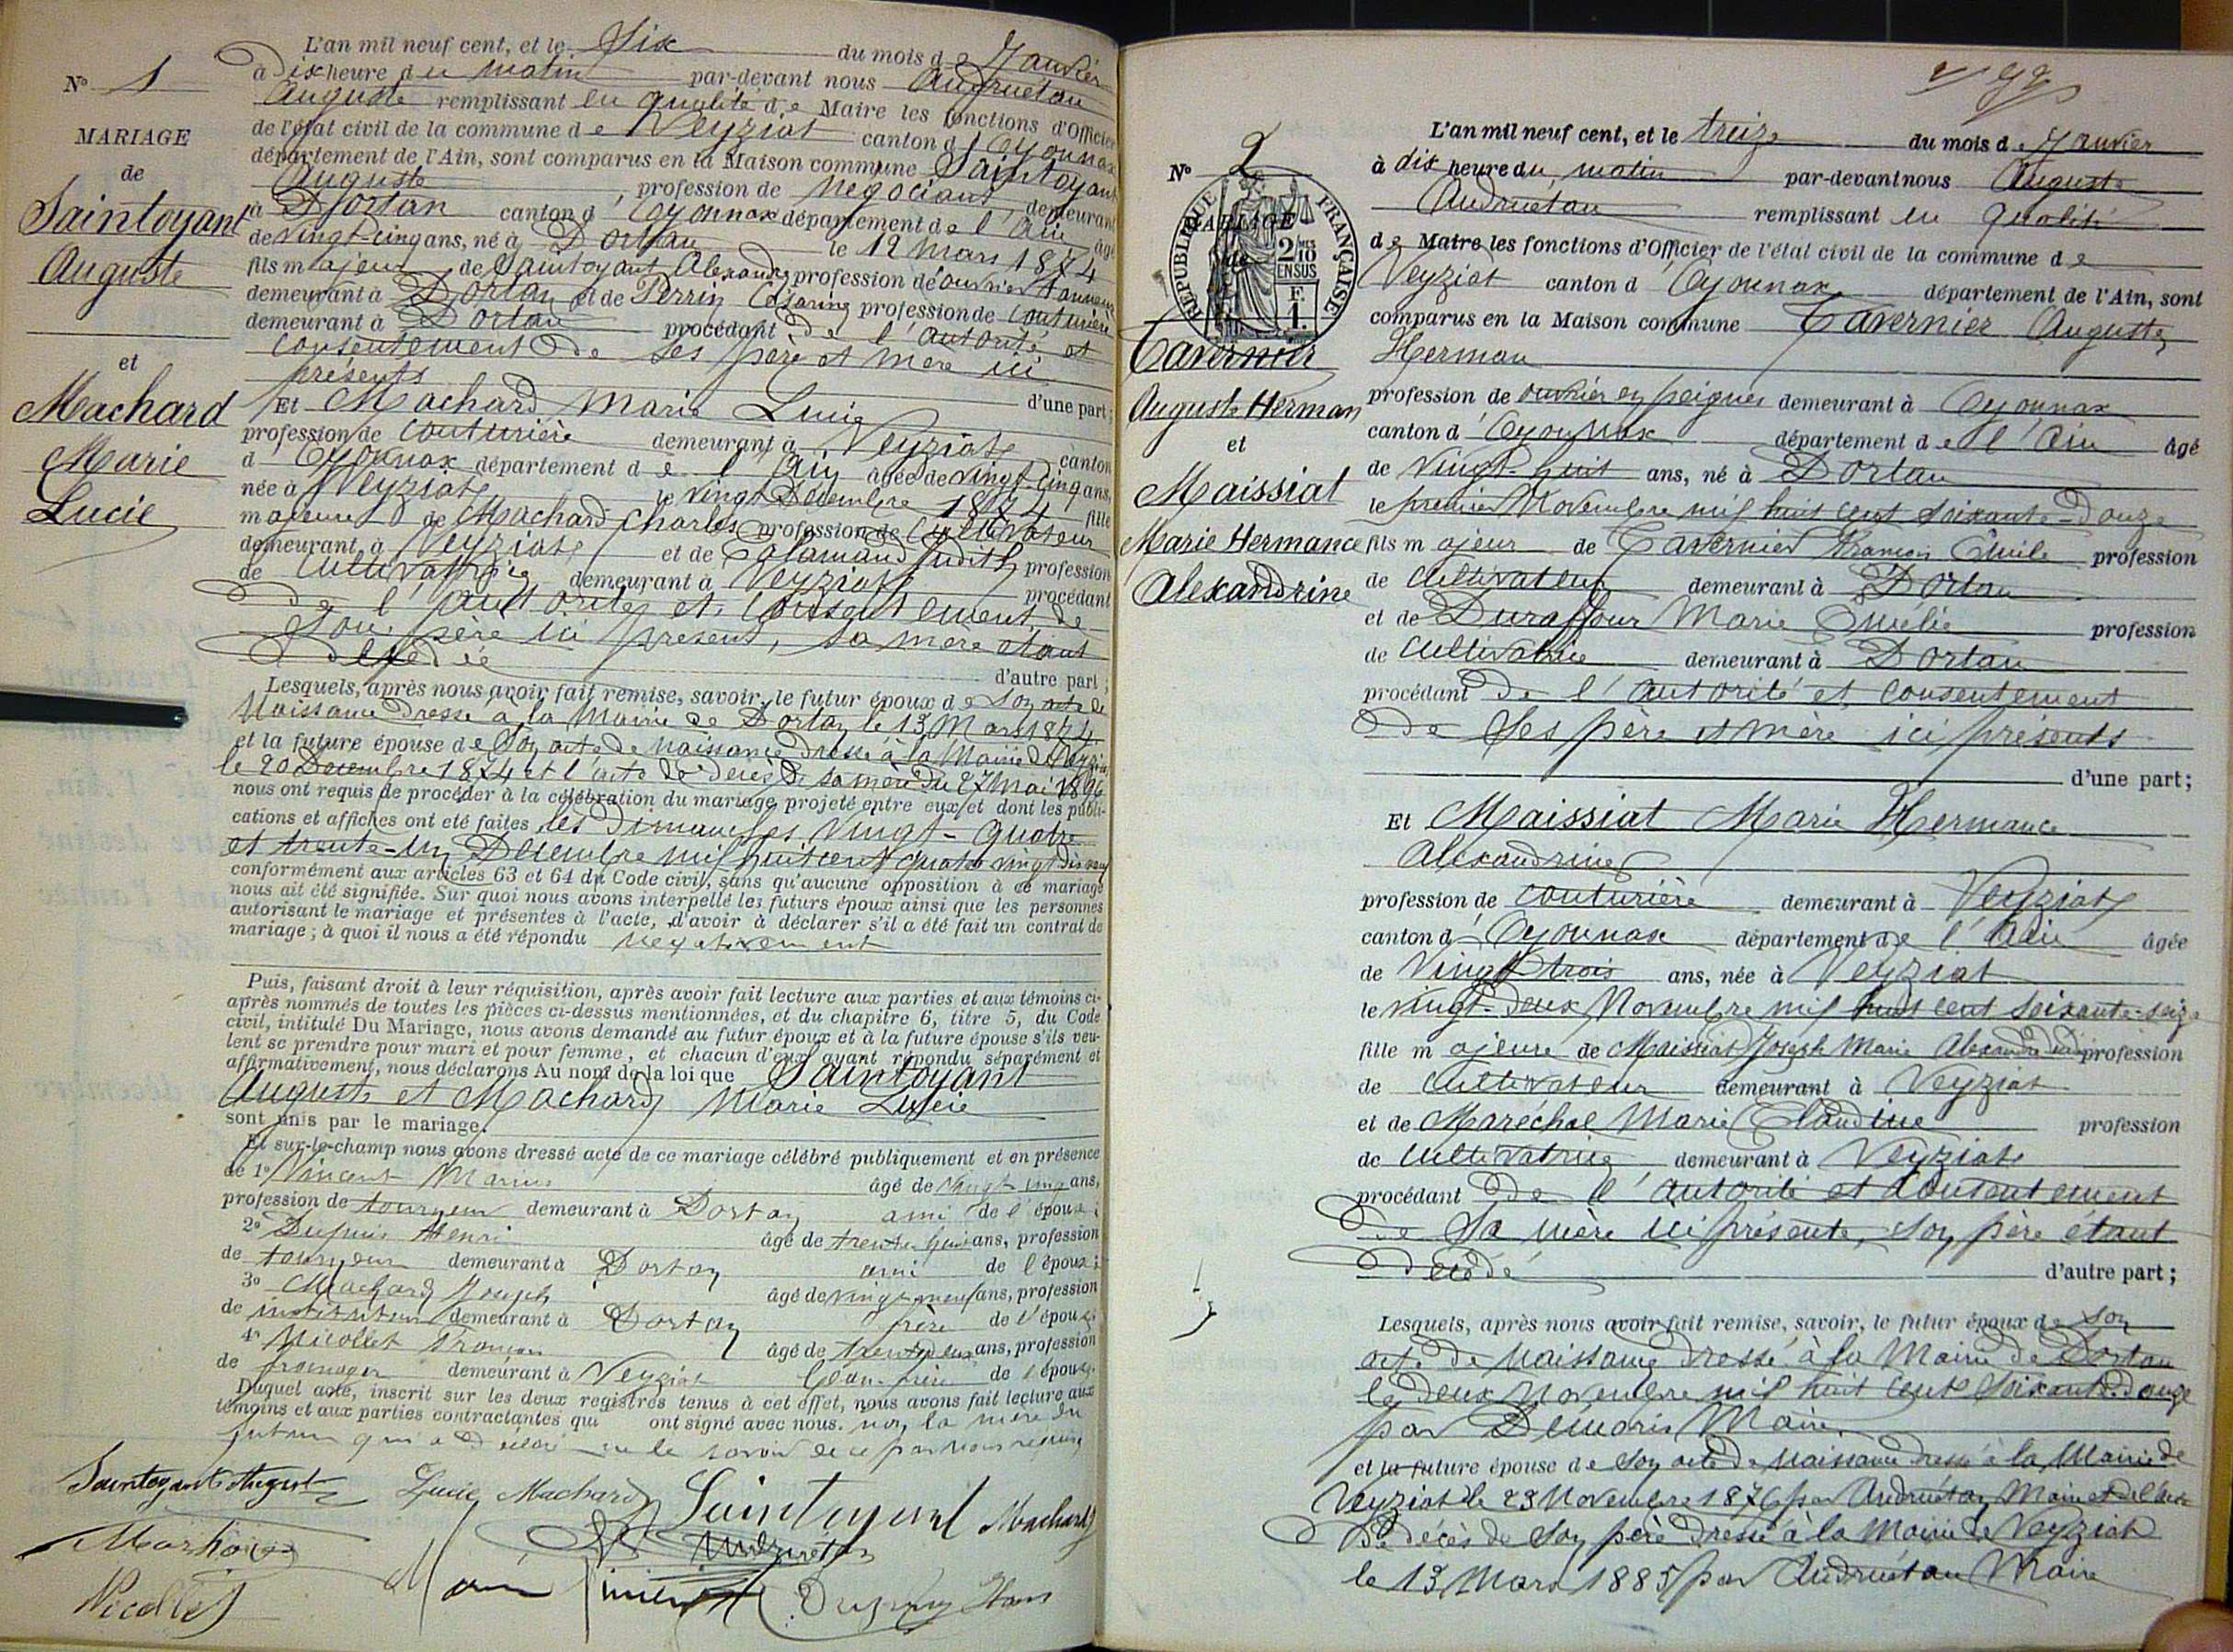 L'an mil neuf cent, et le Six du mois de Janvier
à Dix heure du matin par-devant nous Audruétau
Auguste remplissant en qualité de Maire les fonctions d'Officier
de l'état civil de la commune de Veyziat canton d'Oyonnax
département de l'Ain, sont comparus en la Maison commune Saintoyant
Auguste, profession de Négociant demeurant
à Dortan canton d'Oyonnax département de l'Ain âgé
de Vingt-cinq ans, né à Dortan le 12 Mars 1874
fils majeur de Saintoyant Alexandre profession de ouvrier tourneur
demeurant à Dortan et de Perrin Césarine profession de couturière
demeurant à Dortan procédant de l'autorité et
consentement de ses père et mère ici
présents
d'une part;
Et Machard Marie Lucie
profession de couturière demeurant à Veyziat canton
d'Oyonnax département de l'Ain âgée de vingt-cinq ans,
née à Veyziat le vingt Décembre 1874 fille
majeure de Machard Charles profession de Cultivateur
demeurant à Veyziat et de Calamand Judith profession
de Cultivatrice demeurant à Veyziat procédant
de l'autorité et consentement de
son père ici présent, sa mère étant
décédée
d'autre part;
Lesquels, après nous avoir fait remise, savoir, le futur époux de son acte de
Naissance dressé à la Mairie de Dortan le 13 Mars 1874
et la future épouse de son acte de naissance dressé à la Mairie de Veyziat
le 20 Décembre 1874 et l'acte de décès de sa mère du 27 Mai 1896
nous ont requis de procéder à la célébration du mariage projeté entre eux et dont les publi-
cations et affiches ont été faites les Dimanches Vingt-Quatre
et trente-un Décembre mil huit cent quatre vingt dix neuf
conformément aux articles 63 et 64 du Code civil, sans qu'aucune opposition à ce mariage
nous ait été signifiée. Sur quoi nous avons interpellé les futurs époux ainsi que les personnes
autorisant le mariage et présentes à l'acte, d'avoir à déclarer s'il a été fait un contrat de
mariage; à quoi il nous a été répondu négativement
Puis, faisant droit à leur réquisition, après avoir fait lecture aux parties et aux témoins ci-
après nommés de toutes les pièces ci-dessus mentionnées, et du chapitre 6, titre 5, du Code
civil, intitulé Du Mariage, nous avons demandé au futur époux et à la future épouse s'ils veu-
lent se prendre pour mari et pour femme, et chacun d'eux ayant répondu séparément et
affirmativement, nous déclarons Au nom de la loi que Saintoyant
Auguste et Machard Marie Lucie
sont unis par le mariage.
Et sur-le-champ nous avons dressé acte de ce mariage célébré publiquement et en présence
de 1° Vincent Marius âgé de vingt cinq ans,
profession de tourneur demeurant à Dortan ami de l'époux;
2° Dupuis Henri âgé de trente huit ans, profession
de tourneur demeurant à Dortan ami de l'époux;
3° Machard Joseph âgé de vingt-neuf ans, profession
de instituteur demeurant à Dortan frère de l'épouse;
4° Nicollet François âgé de trente deux ans, profession
de fromager demeurant à Veyziat beau-frère de l'épouse.
Duquel acte, inscrit sur les deux registres tenus à cet effet, nous avons fait lecture aux
témoins et aux parties contractantes qui ont signé avec nous. non la mère du
futur qui a déclaré ne le savoir de ce par nous requise
Saintoyant Auguste Lucie Machard Saintoyant Machard
Audruétau
Nicollet Marius Vincent Dupuis Henri
N° 1
MARIAGE
de
Saintoyant
Auguste
et
Machard
Marie
Lucie
L'an mil neuf cent, et le treize du mois de Janvier
à dix heure du matin par-devant nous Auguste
Audruétau remplissant en qualité
de Maire les fonctions d'Officier de l'état civil de la commune de
Veyziat canton d'Oyonnax département de l'Ain, sont
comparus en la Maison commune Tavernier Auguste
Herman
profession de ouvrier en peignes demeurant à Oyonnax
canton d'Oyonnax département de l'Ain âgé
de Vingt-huit ans, né à Dortan
le premier Novembre mil huit cent soixante-Douze
fils majeur de Tavernier François Emile profession
de Cultivateur demeurant à Dortan
et de Duraffour Marie Emélie profession
de Cultivatrice demeurant à Dortan
procédant de l'autorité et consentement
de ses père et mère ici présents
d'une part;
Et Maissiat Marie Hermance
Alexandrine
profession de couturière demeurant à Veyziat
canton d'Oyonnax département de l'Ain âgée
de Vingt trois ans, née à Veyziat
le vingt-deux Novembre mil huit cent soixante-seize
fille majeure de Maissiat Joseph Marie Alexandre profession
de Cultivateur demeurant à Veyziat
et de Maréchal Marie Claudine profession
de Cultivatrice demeurant à Veyziat
procédant de l'autorité et consentement
de sa mère ici présente, son père étant
décédé
d'autre part;
Lesquels, après nous avoir fait remise, savoir, le futur époux de son
acte de Naissance dressé à la Mairie de Dortan
le deux Novembre mil huit cent soixante-douze
par Maire
et la future épouse de son acte de Naissance dressé à la Mairie de
Veyziat le 23 Novembre 1876 par Audruétau Maire et de l'acte
de décès de son père dressé à la Mairie de Veyziat
le 13 Mars 1885 par Audruétau Maire
N° 2
MARIAGE
de
RÉPUBLIQUE FRANÇAISE
2/10
EN SUS
F.
1.
Tavernier
Auguste Herman
et
Maissiat
Marie Hermance
Alexandrine